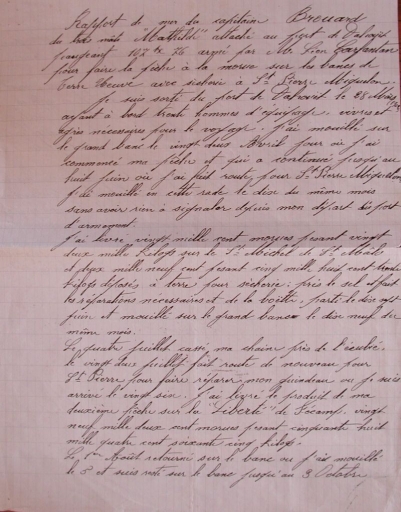 Rapport de mer du capitaine Brouard
du trois mâts "Mathilde" attaché au port de Dahouët
jaugeant 147 tx 76 armé par Mr Léon Carfantan
pour faire la pêche à la morue sur les bancs de
Terre Neuve avec sécherie à St Pierre Miquelon.
Je suis sorti du port de Dahouët le 28 Mars
ayant à bord trente hommes d'équipage, vivres et
agrès nécessaires pour le voyage. J'ai mouillé sur
le grand banc le vingt deux Avril jour où j'ai
commencé ma pêche et qui a continuée jusqu'au
huit juin où j'ai fait route pour St Pierre Miquelon
J'ai mouillé en cette rade le dix du même mois
sans avoir rien à signaler depuis mon départ du port
d'armement.
J'ai livré vingt mille cent morues pesant vingt
deux mille kilogs sur le St Michel de St Malo
et deux mille neuf cent pesant cinq mille huit cent trente
kilogs déposés à terre pour sécherie: pris le sel et fait
les réparations nécessaires et de la boëtte, parti le dix sept
juin et mouillé sur le grand banc le dix neuf du
même mois.
Le quatre juillet cassé ma chaîne près de l'écubier
le vingt deux juillet fait route de nouveau pour
St Pierre pour faire réparer mon guindeau où je suis
arrivé le vingt six. J'ai livré le produit de ma
deuxième pêche sur la "Liberté" de Fécamp, vingt
neuf mille deux cent morues pesant cinquante huit
mille quatre cent soixante cinq kilogs.
Le 1er Août retourné sur le banc où j'ai mouillé
le 3 et suis resté sur le banc jusqu'au 3 Octobre